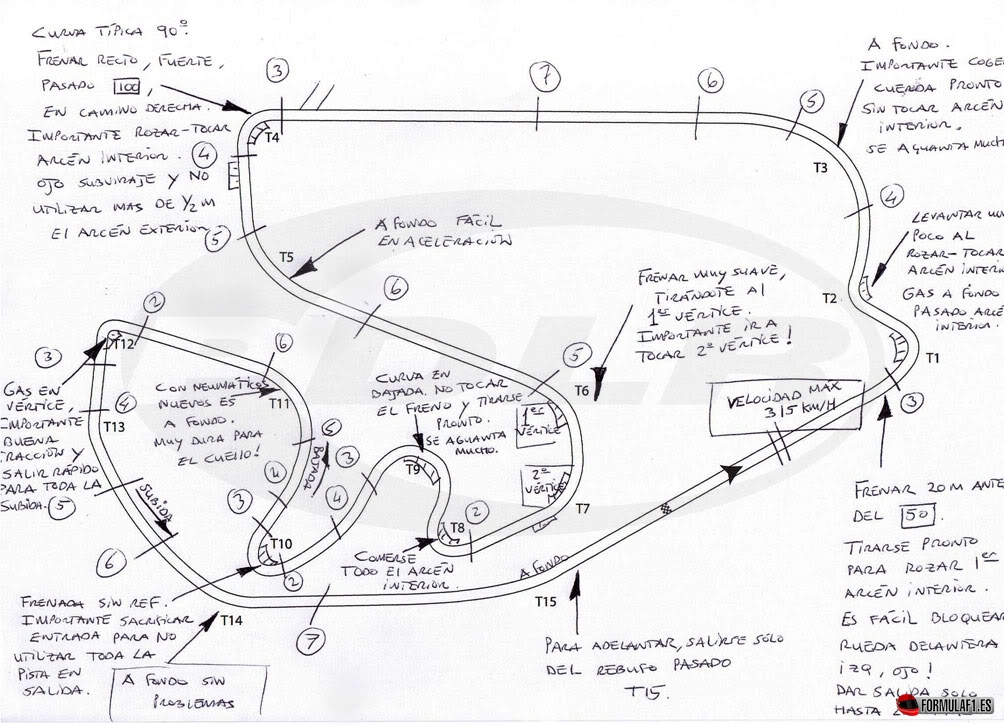 CURVA TÍPICA 90º.
FRENAR RECTO, FUERTE,
PASADO 100,
EN CAMINO DERECHA.
IMPORTANTE ROZAR-TOCAR
ARCÉN INTERIOR.
OJO SUBVIRAJE Y NO
UTILIZAR MAS DE 1/2 M
EL ARCÉN EXTERIOR
3
7
6
5
4
T4
4
5
T5
A FONDO FÁCIL
EN ACELERACIÓN
6
A FONDO.
IMPORTANTE COGE
CUERDA PRONTO
SIN TOCAR ARCÉN
INTERIOR.
SE AGUANTA MUCHO
T3
LEVANTAR UN
POCO AL
ROZAR-TOCAR
ARCÉN INTERI
GAS A FONDO
PASADO ARCÉ
INTERIOR.
T2
T1
3
FRENAR MUY SUAVE,
TIRÁNDOTE AL
1er VÉRTICE.
IMPORTANTE IR A
TOCAR 2º VÉRTICE!
5
T6
1er
VÉRTICE
2º
VÉRTICE
T7
VELOCIDAD MÁX
315 KM/H
2
T12
3
GAS EN
VÉRTICE,
IMPORTANTE
BUENA
TRACCIÓN Y
SALIR RÁPIDO
PARA TODA LA
SUBIDA.
4
T13
5
SUBIDA
6
6
CON NEUMÁTICOS
NUEVOS ES
A FONDO.
MUY DURA PARA
EL CUELLO!
T11
5
BAJADA
4
3
T10
2
CURVA EN
BAJADA. NO TOCAR
EL FRENO Y TIRARSE
PRONTO.
SE AGUANTA
MUCHO.
3
4
T9
T8
2
COMERSE
TODO EL ARCÉN
INTERIOR.
FRENADA SIN REF.
IMPORTANTE SACRIFICAR
ENTRADA PARA NO
UTILIZAR TODA LA
PISTA EN
SALIDA.
T14
A FONDO SIN
PROBLEMAS
7
A FONDO
T15
PARA ADELANTAR, SALIRSE SÓLO
DEL REBUFO PASADO
T15.
FRENAR 20M ANTE
DEL 50.
TIRARSE PRONTO
PARA ROZAR 1er
ARCÉN INTERIOR.
ES FÁCIL BLOQUEAR
RUEDA DELANTERA
IZQ, OJO!
DAR SALIDA SOLO
HASTA
FORMULAF1.ES